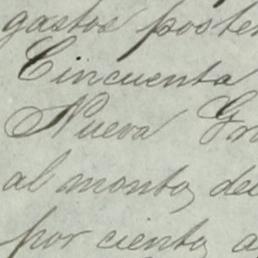 gastos poster
Cincuenta
Nueva Gr
al monto, de
por ciento, a